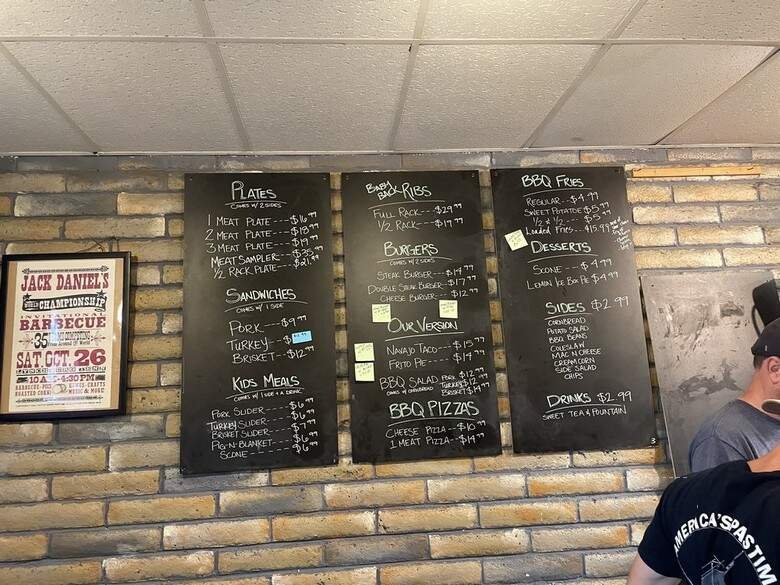 JACK DANIEL'S
WORLD CHAMPIONSHIP
INVITATIONAL
BARBECUE
35
SAT OCT. 26
10 A.M.-4:30 P.M.
PLATES
COMES W/ 2 SIDES
1 MEAT PLATE---$16.99
2 MEAT PLATE---$18.99
3 MEAT PLATE---$19.99
MEAT SAMPLER---$35.99
1/2 RACK PLATE---$21.99
SANDWICHES
COMES W/ 1 SIDE
PORK---$9.99
TURKEY---$
BRISKET---$12.99
KIDS MEALS
COMES W/ 1 SIDE & A DRINK
PORK SLIDER---$6.99
TURKEY SLIDER---$6.99
BRISKET SLIDER---$7.99
PIG-N-BLANKET---$6.99
SCONE---$6.99
BABY BACK RIBS
FULL RACK---$29.99
1/2 RACK---$19.99
BURGERS
COMES W/ 2 SIDES
STEAK BURGER---$14.99
DOUBLE STEAK BURGER---$17.99
CHEESE BURGER---$12.99
OUR VERSION
NAVAJO TACO---$15.99
FRITO PIE---$14.99
BBQ SALAD PORK $12.99
COMES W/ CORNBREAD TURKEY $12.99
BRISKET $14.99
BBQ PIZZAS
CHEESE PIZZA---$10.99
1 MEAT PIZZA---$14.99
BBQ FRIES
REGULAR---$4.99
SWEET POTATOE $5.99
1/2 x 1/2---$5.99
Loaded Fries---$15.99
DESSERTS
SCONE---$4.99
LEMON ICE BOX PIE $4.99
SIDES $2.99
CORNBREAD
POTATO SALAD
BBQ BEANS
COLESLAW
MAC N CHEESE
CREAM CORN
SIDE SALAD
CHIPS
DRINKS $2.99
SWEET TEA & FOUNTAIN
3
AMERICA'S PASTIM